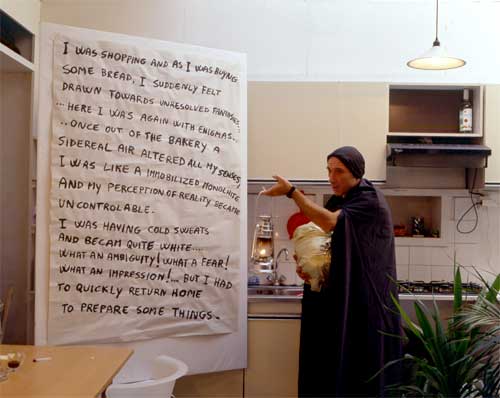 I WAS SHOPPING AND AS I WAS BUYING
SOME BREAD, I SUDDENLY FELT
DRAWN TOWARDS UNRESOLVED FANTASIES..
... HERE I WAS AGAIN WITH ENIGMAS...
.. ONCE OUT OF THE BAKERY A
SIDEREAL AIR ALTERED ALL MY SENSES,
I WAS LIKE A IMMOBILIZED MONOLHITE
AND MY PERCEPTION OF REALITY BECAME
UNCONTROLABLE.
I WAS HAVING COLD SWEATS
AND BECAM QUITE WHITE....
WHAT AN AMBIGUITY! WHAT A FEAR!
WHAT AN IMPRESSION!... BUT I HAD
TO QUICKLY RETURN HOME
TO PREPARE SOME THINGS..